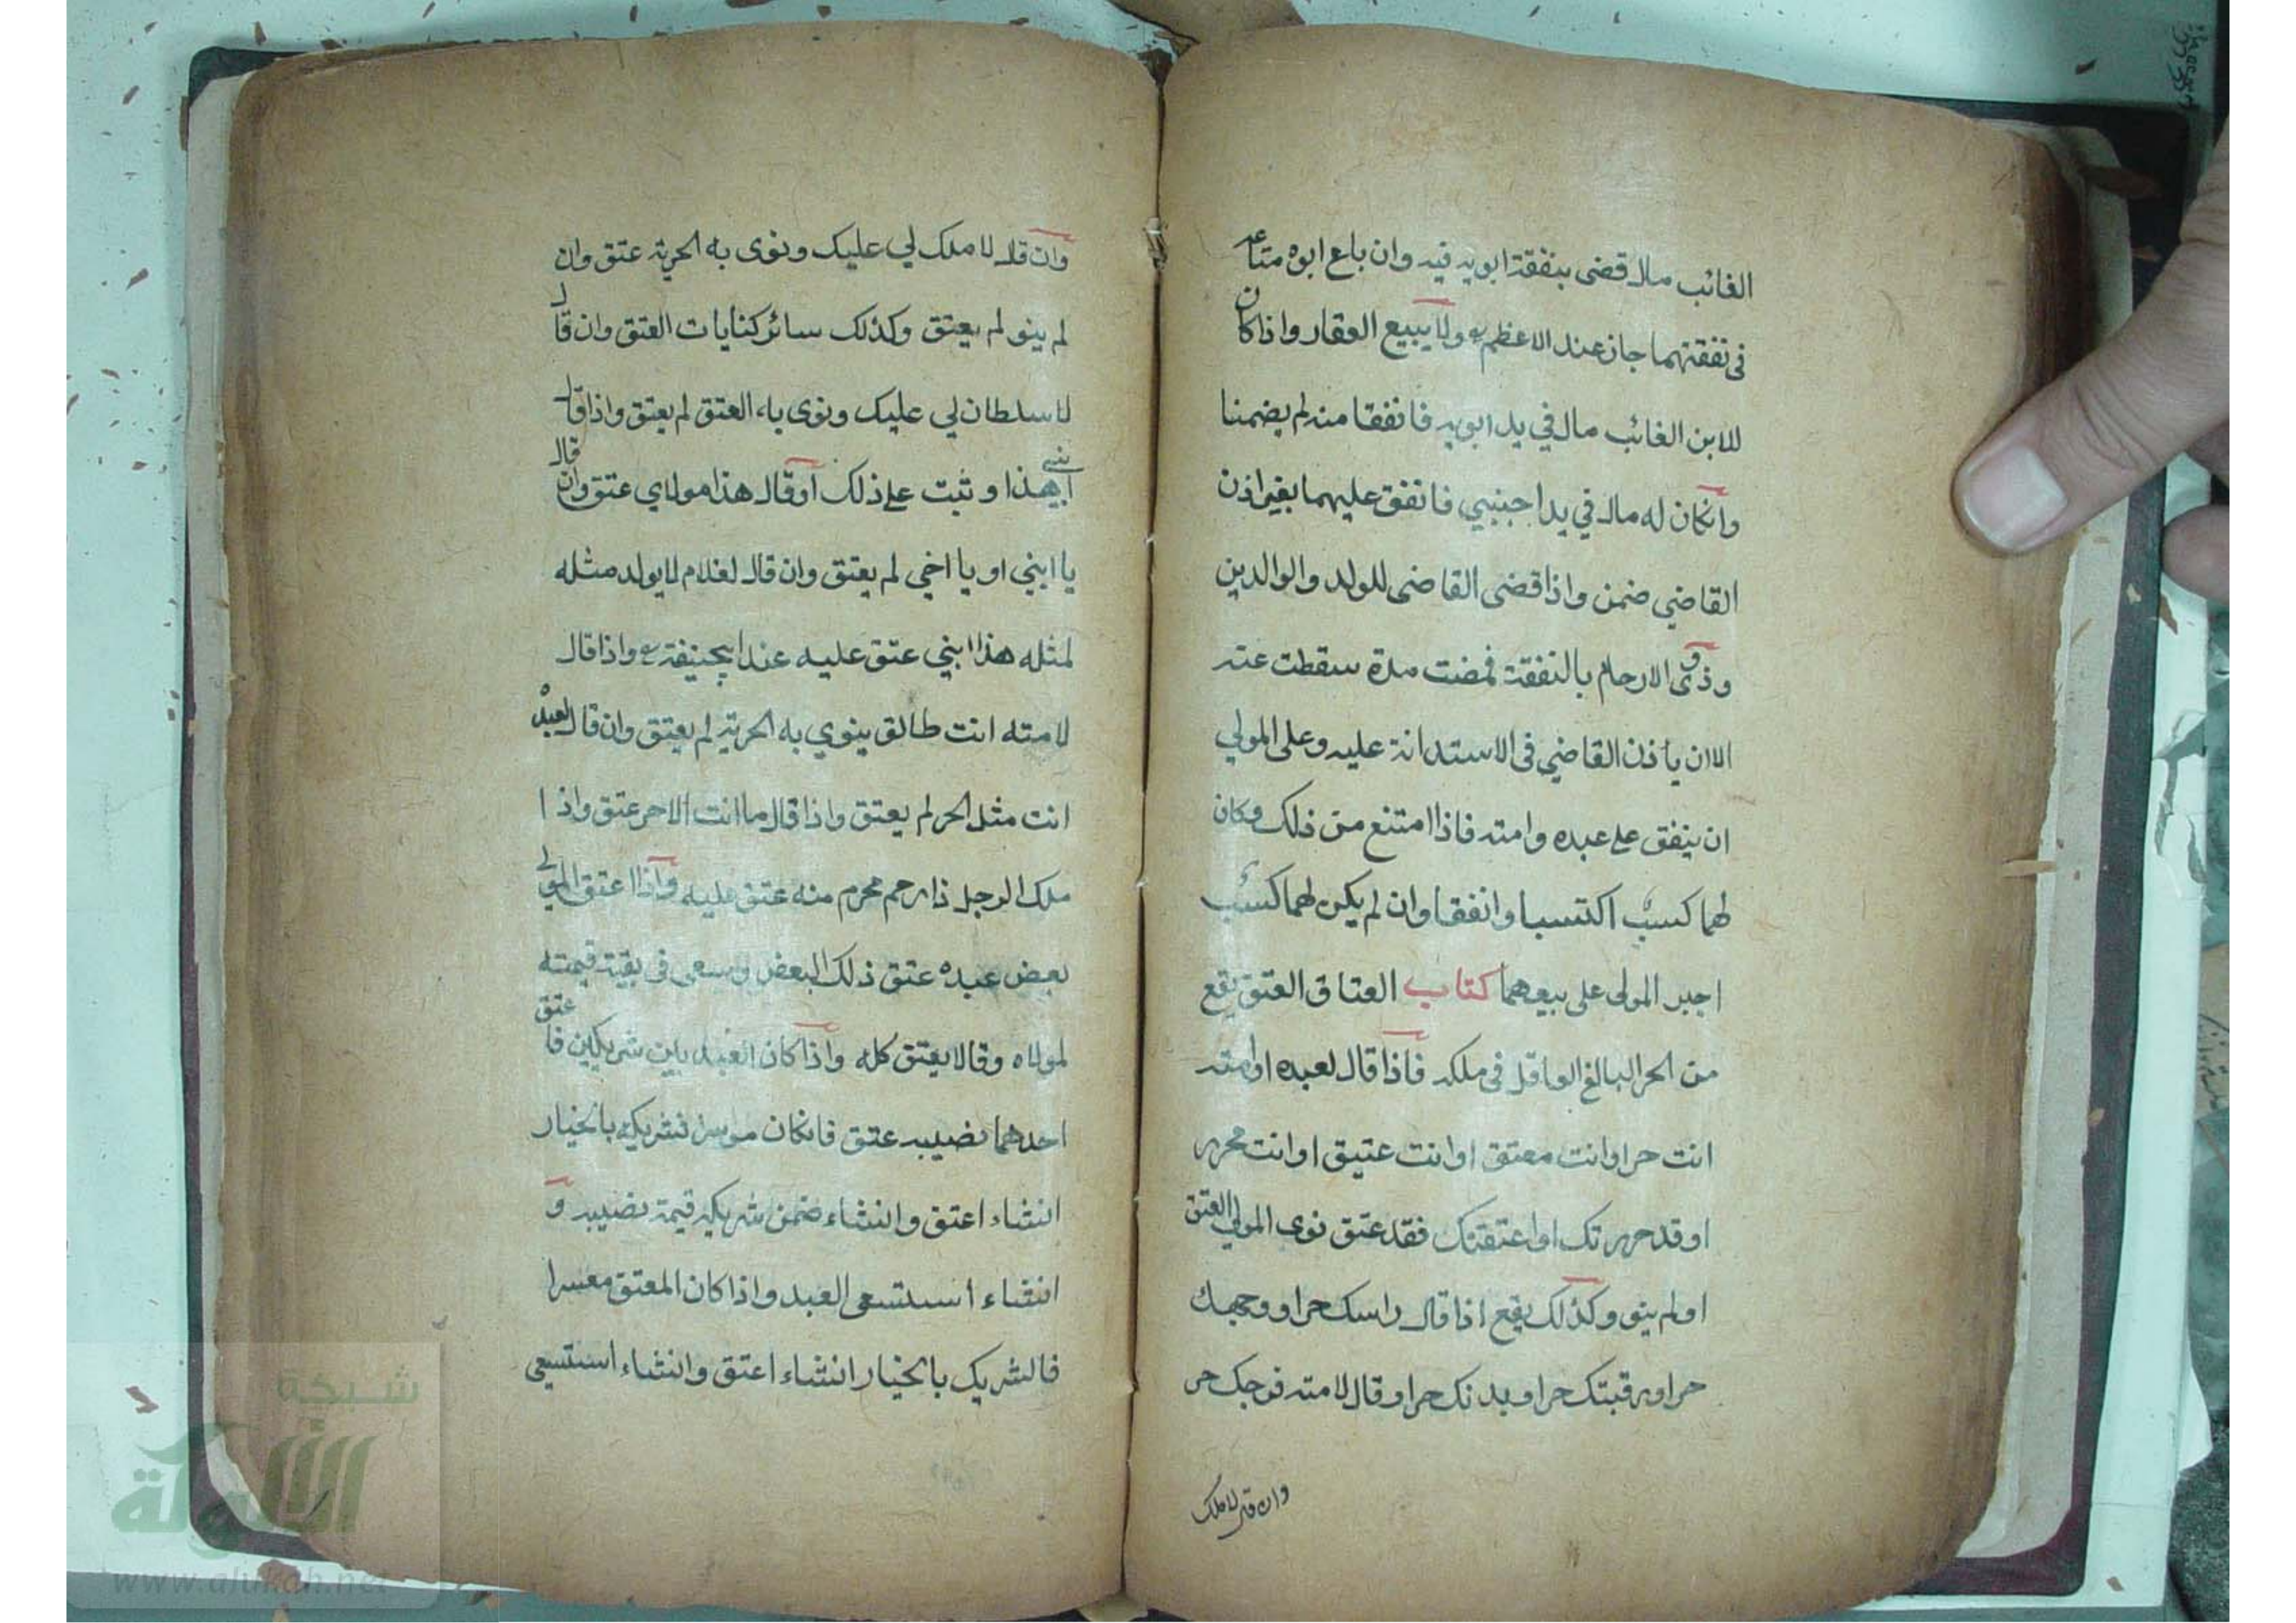 الغائب مال قضى بنفقة ابويه فيه وان باع ابوه متاعه
في نفقتهما جاز عند الاعظم ولا يبيع العقار واذا كان
للابن الغائب مال في يد ابويه فانفقا منه لم يضمنا
وانكان له مال في يد اجنبي فانفق عليهما بغير اذن
القاضي ضمن واذا قضى القاضى للولد والوالدين
وذوى الارحام بالنفقة فمضت مدة سقطت عنه
الا ان يأذن القاضي فى الاستدانة عليه وعلى المولي
ان ينفق على عبده وامته فاذا امتنع من ذلك وكان
لهما كسب اكتسبا وانفقا وان لم يكن لهما كسب
اجبر المولى على بيعهما كتاب العتاق العتق يقع
من الحر البالغ العاقل فى ملكه فاذا قال لعبده او امته
انت حر او انت معتق او انت عتيق او انت محرر
او قد حررتك او اعتقتك فقد عتق نوى المولى العتق
او لم ينو وكذلك يقع اذا قال راسك حر او وجهك
حر او رقبتك حر او بدنك حر او قال لامته فرجك حر
وان قال لا ملك
وان قال لا ملك لي عليك ونوى به الحرية عتق وان
لم ينو لم يعتق وكذلك سائر كنايات العتق وان قال
لا سلطان لي عليك ونوى به العتق لم يعتق واذا قال
ابني هذا و ثبت على ذلك او قال هذا مولاي عتق وان قال
يا ابني او يا اخي لم يعتق وان قال لغلام لا يولد مثله
لمثله هذا ابني عتق عليه عند ابيحنيفة واذا قال
لامته انت طالق ينوي به الحرية لم يعتق وان قال لعبده
انت مثل الحر لم يعتق واذا قال ما انت الا حر عتق واذا
ملك الرجل ذا رحم محرم منه عتق عليه واذا اعتق المولى
بعض عبده عتق ذلك البعض وسعى فى بقية قيمته
لمولاه وقالا يعتق كله واذا كان العبد بين شريكين فاعتق
احدهما نصيبه عتق فانكان موسرا فشريكه بالخيار
انشاء اعتق وانشاء ضمن شريكه قيمة نصيبه و
انشاء استسعى العبد واذا كان المعتق معسرا
فالشريك بالخيار انشاء اعتق وانشاء استسعى
شبكة
الألوكة
www.alukah.net